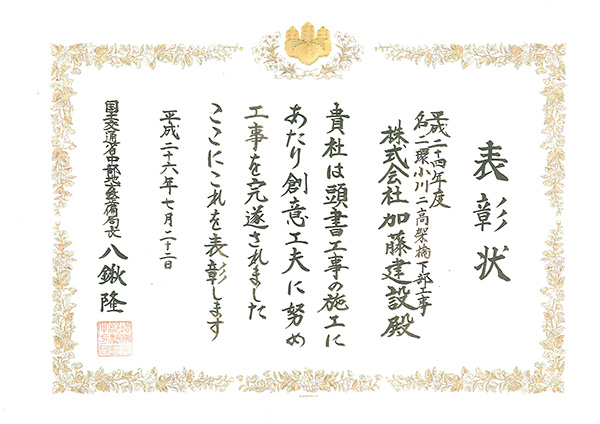 表彰状
平成二十四年度
名二環小川二高架橋下部工事
株式会社加藤建設殿
貴社は頭書工事の施工に
あたり創意工夫に努め
工事を完遂されました
ここにこれを表彰します
平成二十六年七月二十二日
国土交通省中部地方整備局長
八鍬隆